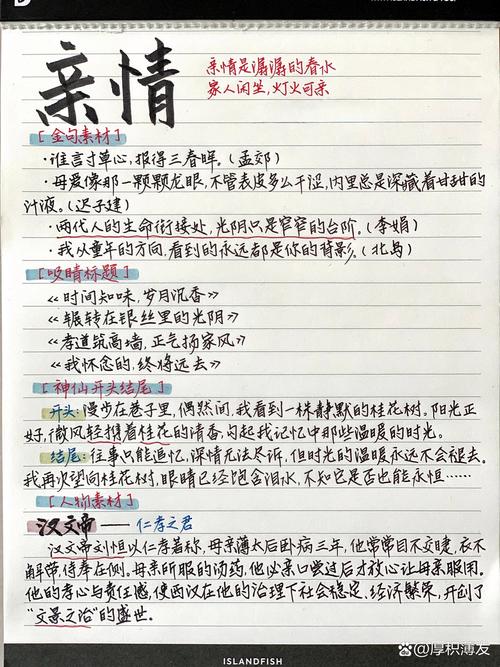 亲情
亲情是潺潺的春水
家人闲坐,灯火可亲
[金句素材]
·谁言寸草心,报得三春晖。(孟郊)
·母爱像那一颗颗龙眼,不管表皮多么干涩,内里总是深藏着甘甜的
汁液。(迟子建)
·两代人的生命衔接处,光阴只是窄窄的台阶。(李娟)
·我从童年的方向,看到的永远都是你的背影。(北岛)
[吸睛标题]
《时间知味,岁月沉香》
《辗转在银丝里的光阴》
《孝道筑高墙,正气扬家风》
《我怀念的,终将远去》
[神仙开头结尾]
开头:漫步在巷子里,偶然间,我看到一株静默的桂花树。阳光正
好,微风轻携着桂花的清香,勾起我记忆中那些温暖的时光。
结尾:往事只能追忆,深情无法尽诉,但时光的温暖永远不会褪去。
我再次望向桂花树,眼睛已经饱含泪水,不知它是否也能永恒……
[人物素材]
汉文帝——仁孝之君
汉文帝刘恒以仁孝着称,母亲薄太后卧病三年,他常常目不交睫,衣不
解带,侍奉在侧。母亲所服的汤药,他必亲口尝过后才放心让母亲服用。
他的孝心与责任感,使西汉在他的治理下社会稳定、经济繁荣,开创了
“文景之治”的盛世。
ISLANDFISH
百家号/厚积薄友